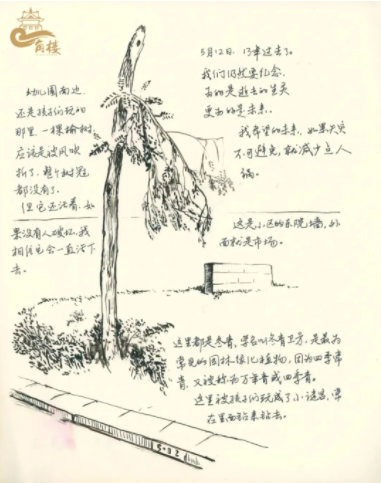 角楼
5月12日，13年过去了。
我们仍然要纪念，
为的是逝去的生灵
更为的是未来。
我希望的未来，如果天灾
不可避免，就减少点人
祸。
幼儿园南边，
还是孩子们玩的
那里，一棵榆树，
应该是被风吹
折了，整个树冠
都没有了。
但它还活着，如
果没有人破坏，我
相信它会一直活下
去。
这是小区的东院墙，外
面就是市场。
这里都是冬青，学名叫冬青卫矛，是最为
常见的园林绿化植物，因为四季常
青，又被称为万年青或四季青。
这里被孩子们玩成了小迷宫，常
在里面钻来钻去。
5·12